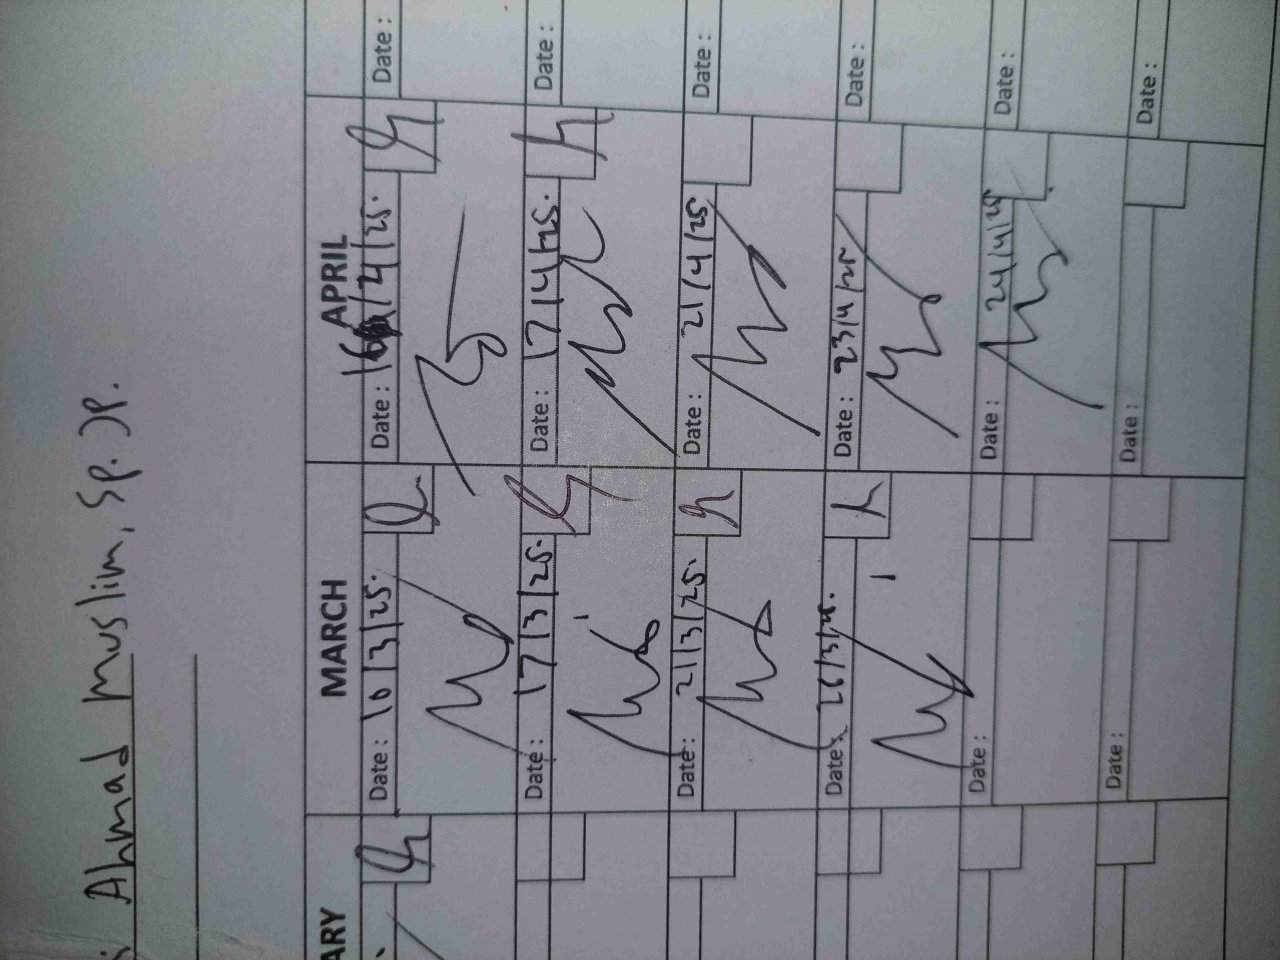 : Ahmad Muslim, Sp. JP.
ARY MARCH APRIL
Date : 10/3/25. Date : 16/4/25. Date :
Date : 17/3/25. Date : 17/4/25. Date :
Date : 21/3/25. Date : 21/4/25 Date :
Date : 26/3/25. Date : 23/4/25 Date :
Date : Date : 24/4/25 Date :
Date : Date : Date :